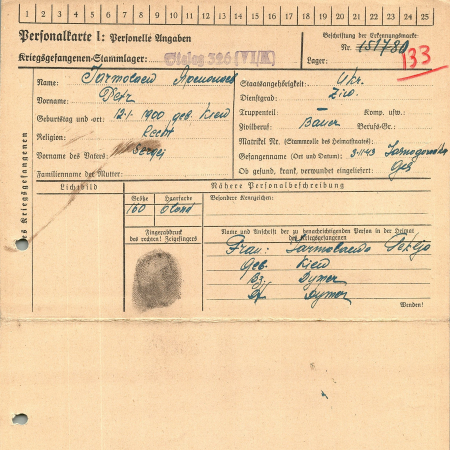 1 2 3 4 5 6 7 8 9 10 11 12 13 14 15 16 17 18 19 20 21 22 23 24 25
Personalkarte I: Personelle Angaben
Kriegsgefangenen-Stammlager: Stalag 326 (VI/K)
Beschriftung der Erkennungsmarke
Nr. 151780
Lager: 133
Name: Jarmolaew
Vorname: Petr
Geburtstag und -ort: 12.1.1900 geb. Kiew
Religion: Recht
Vorname des Vaters: Sergej
Familienname der Mutter:
Staatsangehörigkeit: Ukr.
Dienstgrad: Ziv.
Truppenteil: — Komp. usw.:
Zivilberuf: Bauer Berufs-Gr.:
Matrikel Nr. (Stammrolle des Heimatstaates):
Gefangennahme (Ort und Datum): 3.11.43
Ob gesund, krank, verwundet eingeliefert: Ges
des Kriegsgefangenen
Lichtbild
Nähere Personalbeschreibung
Größe Haarfarbe
160 blond
Besondere Kennzeichen:
Fingerabdruck
des rechten! Zeigefingers
Name und Anschrift der zu benachrichtigenden Person in der Heimat
des Kriegsgefangenen
Frau:
Geb. Kiew
Bz. Dymer
Df. Dymer
Wenden!